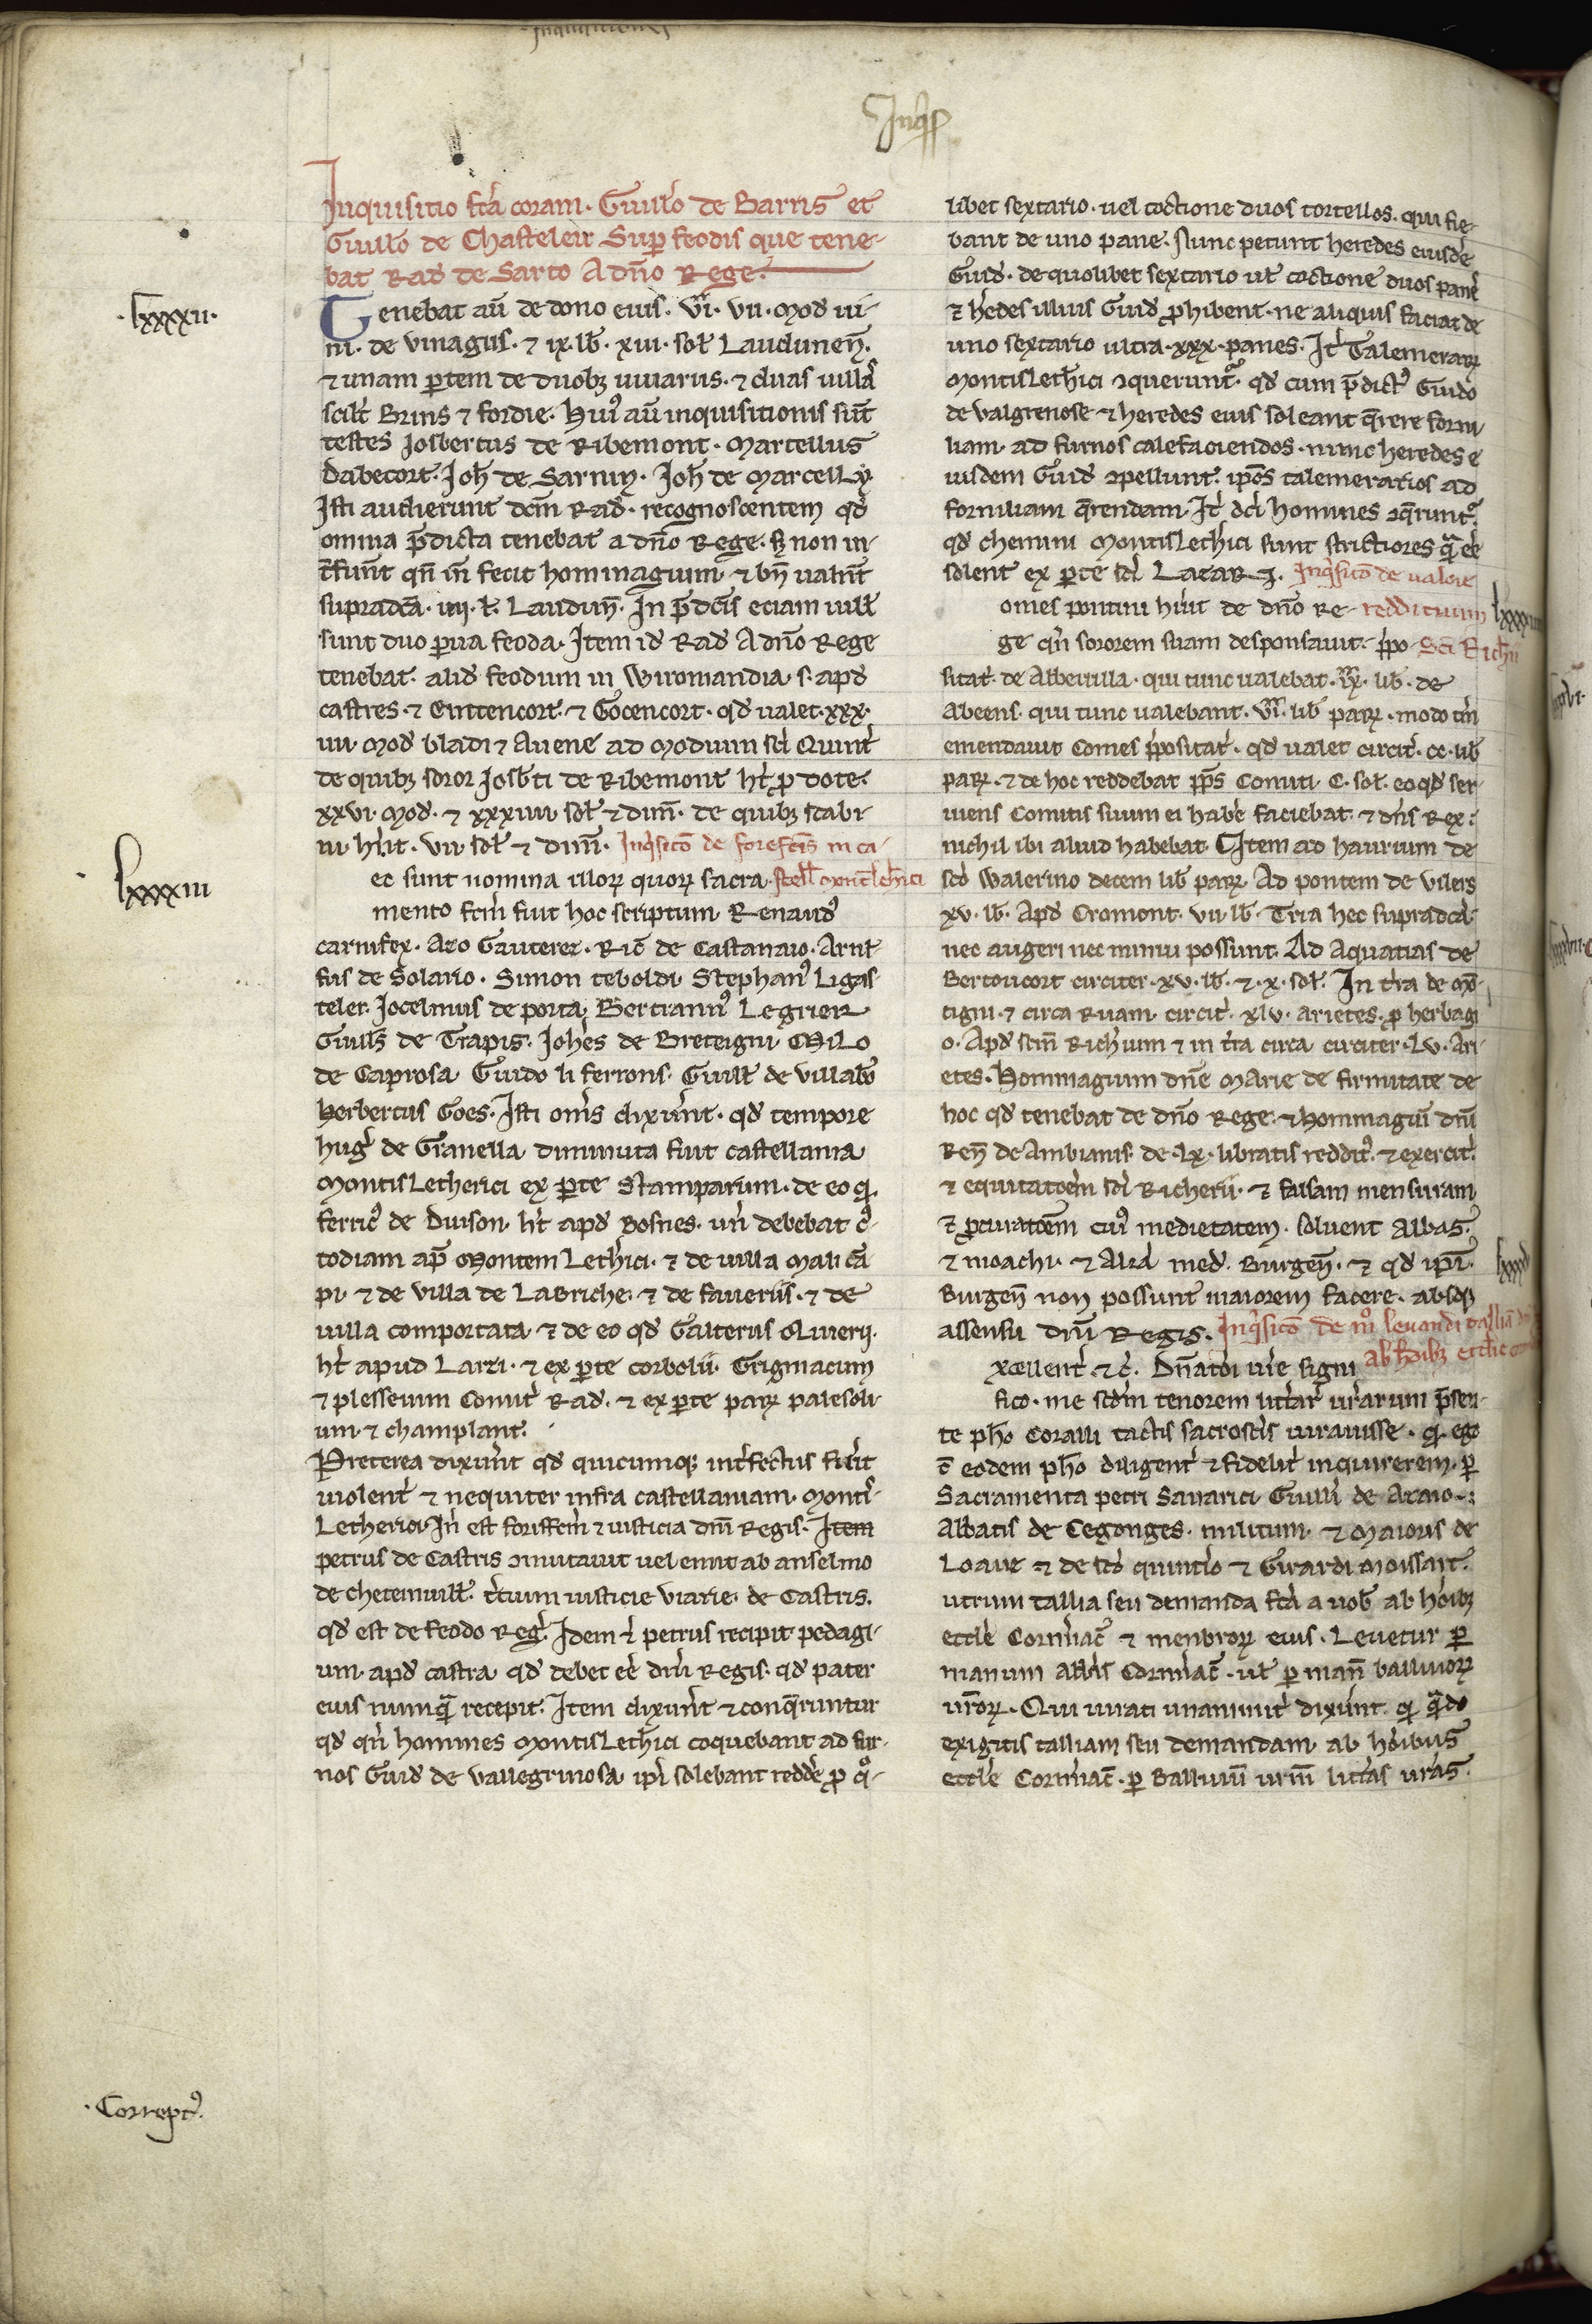 Inqͥſ
Inquisitio fc̃a coram. Guill̃o de Barris et
Guill̃o de Chasteleir Sup̱ feodis que tene-
bat Rad̃ de Sarto A dño Rege.
.lxxxxii.
Tenebat aũ de dono eius. vi.xx vii. Mod̃ ui-
ni. de vinagiis. ⁊ ix. lb̃. xiii. sol̃ Laudunen̄.
⁊ unam p̱tem de duobꝫ uiuariis. ⁊ duas uillas
scil̃t Brins ⁊ fordie. Huiꝰ aũ inquisitionis sũt
testes Josbertus de Ribemont. Martellus
Dabecort. Joh̃ de Sarnuy. Joh̃ de Marcelly.
Isti audierunt dc̃m Rad̃. recognoscentem qd̃
omnia p̃dicta tenebat a dño Rege. sꝫ non in-
t̃fũnt qñ in̄ fecit hommagium ⁊ bñ ualũt
supradc̃a. iiij. l̃. Laudun̄. In p̃dc̃is eciam uill̃
sunt duo parua feoda. Item id̃ Rad̃ A dño Rege
tenebat aliđ feodum in Wiromandia. s. apđ
castres. ⁊ Emtencort. ⁊ Gocencort. qđ ualet. xxx.
iiii. Mođ bladi ⁊ Auene ad modium sc̃i Quint̃
de quibꝫ soror Josb̃ti de Ribemont h̃t p̱ dote.
xxvi. Mođ. ⁊ xxxiiii. sol̃ ⁊ dim̃. de quibꝫ stabi-
ni h̃nt. vii. sol̃ ⁊ dim̃. Inq̃sitõ de forefc̃is in ca-
lxxxxiii
ec sunt nomina illoꝝ quoꝝ sacra- stell̃ Mont̃leh̃ici
mento fc̃m fuit hoc scriptum. Renaudꝰ
carnifex. Azo Gauterer. Ric̃ de Castanaio. Arnt
fus de Solario. Simon teboldi. Stephanꝰ Ligas-
teler. Jocelinus de porta. Bertrannꝰ Legrier.
Guill̃s de Trapis. Joh̃es de Breteigni. Milo
de Caprosa. Guido li ferrons. Guill̃ de villabõ
Herbertus Goes. Isti om̃s dixer̃nt. qđ tempore
hug̃ de Grauella diminuta fuit castellania
Montisletherici ex p̱te Stamparum. de eo qđ
ferricꝰ de Buison. h̃t apđ Bosnes. un̄ debebat cꝰ-
todiam ap̃ Montem Leth̃ici. ⁊ de uilla Mali cã
pi. ⁊ de villa de Labriche. ⁊ de faueriis. ⁊ de
uilla comportata ⁊ de eo qđ Galterus Oliuerij.
h̃t apud Larzi. ⁊ ex p̱te corbolii. Grigniacum
⁊ plesseium Comit̃ Rad̃. ⁊ ex p̱te paꝝ palesoli-
um. ⁊ champlant.
Preterea dixer̃nt qđ quicumqꝫ int̃fectus fũit
uiolent̃ ⁊ nequiter infra castellaniam. Monti-
Letherici. In̄ est foriffc̃m ⁊ iusticia dñi Regis. Item
petrus de Castris ꝯmutauit uel emit ab anselmo
de chetenuill̃. t̃cium iusticie viarie. de Castris.
qđ est de feodo Reg̃. Idem ⁊ petrus recipit pedagi-
um. apđ castra. qđ debet eẽ dñi Regis. qđ pater
eius numq̃ recepit. Item dixer̃nt ⁊ conq̃runtur
qđ qñ homines Montisleth̃ici coquebant ad fur-
nos Guiđ de vallegrinosa ip̃i solebant redde p̱ qͦ-
libet sextario. uel coctione duos tortellos. qui fie-
bant de uno pane. Nunc petunt heredes eiusđe
Guiđ. de quolibet sextario ul̃ coctione duos panes
⁊ h̃edes illius Guiđ p̱hibent. ne aliquis faciat de
uno sextario ultra. xxx. panes. It̃ Talemerarii
Montisleth̃ici ꝯquerunt̃. qđ cum p̃dictꝰ Guido
de valgrenose ⁊ heredes eius soleant q̃rere forni
liam. ad furnos calefaciendos. nunc heredes e
iusdem Guiđ ꝯpellunt. ip̃os talemerarios ad
forniliam q̃rendam. It̃ dc̃i homines ꝯq̃runt̃.
qđ chemini Montisleth̃ici sunt strictiores q̃ eẽ
solent ex p̱te sc̃i Lazari. Inq̃sitõ de valore
lxxxxiiii
omes pontiui h̃uit de dño Re- reddituum
ge qñ sororem suam desponsauit. p̃po- Sc̃i Rich̃ii
sitat̃. de Abbeuilla. qui tunc ualebat. lib̃. de
Abeens. qui tunc ualebant. vi.xx lib̃ paꝝ. modo tñ
emendauit Comes p̃positat̃. qđ ualet circit̃. cc. lib̃
paꝝ. ⁊ de hoc reddebat p̃p̃s Comiti. C. sol̃. eo qđ ser-
uiens Comitis suum ei hab̃e faciebat. ⁊ dñs Rex.
nichil ibi aliud habebat. Item ad hanrium de
sc̃o Walerino decem lib̃ paꝝ. Ad pontem de vilers
xv. lb̃. Apđ Cromont. vii. lb̃. Tria hec supradc̃a.
nec augeri nec minui possunt. Ad aquatias de
Bertoucort circiter. xv. lb̃. ⁊. x. sol̃. In t̃ra de Mõ-
tigni. ⁊ circa Ruam. circit̃. xlv. arietes. p̱ herbagi
o. Apđ sc̃m Rich̃ium ⁊ in t̃ra circa circiter. lv. Ari-
etes. Hommagium dñe Marie de firmitate de
hoc qđ tenebat de dño Rege. ⁊ Hommagiũ dñi
Ren̄ de Ambianis. de. lx. libratis reddit̃. ⁊ exercit̃.
⁊ equitatõem sc̃i Richerii. ⁊ falsam mensuram
⁊ p̱curatõem cuiꝰ medietatem. soluent Abbas.
⁊ moachi. ⁊ Aliã međ. Burgen̄. ⁊ qđ ip̃i.
Burgen̄ non possunt maiorem facere. absqꝫ
assensu dñi Regis. Inq̃sitõ de mͦ leuandi tallia
ab h̃oibꝫ eccl̃ie
xcellent̃. ⁊c̃. Dñatõi ur̃e signi
fico. me scđm tenorem litt̃aꝝ ur̃arum p̃sen-
te ph̃o Coralli tactis sacrosc̃is iurauisse. qđ ego
c̃ eodem ph̃o diligent̃ ⁊ fidelit̃ inquirerem. p̱
Sacramenta petri Sauarici. Guill̃i de Azaio.
Abbatis de Cegonges. militum. ⁊ Maioris de
Loaue ⁊ de sc̃o quintĩo ⁊ Girardi Moissart.
utrum tallia seu demanda fc̃a a uob̃ ab h̃oibꝫ
eccl̃e Cormac̃ ⁊ menbroꝝ eius. Leuetur p̱
manum abb̃is Cormac̃. ul̃ p̱ man̄ balliuoꝝ
ur̃oꝝ. Qui iurati unanimit̃ dixer̃nt. qđ q̃ndo
exigitis talliam seu demandam. ab h̃oibus
eccl̃e Cormac̃. p̱ Balliuũ ur̃m litt̃as ur̃as.
.Correptꝰ.